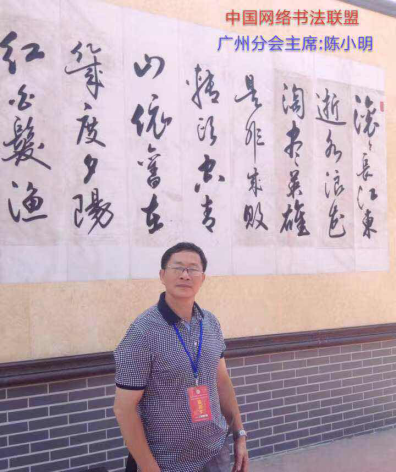 中国网络书法联盟
广州分会主席:陈小明
滚〻長江東
逝水浪花
淘尽英雄
是非成敗
轉头空青
山依舊在
幾度夕陽
红白髮漁